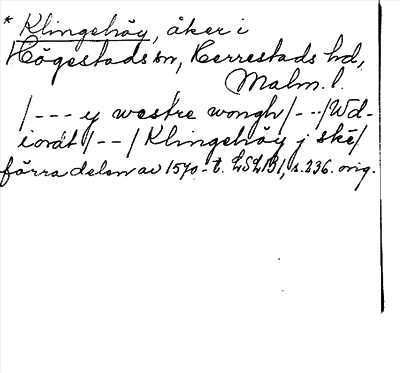 * Klingehöy, åker i
Högestads sn, Herrestads hd,
Malm. l.
/--- y westre wongh/---/Wd-
iordt/--/Klingehöy j ske/
förra delen av 1570-t. LSLB1, s. 236. orig.